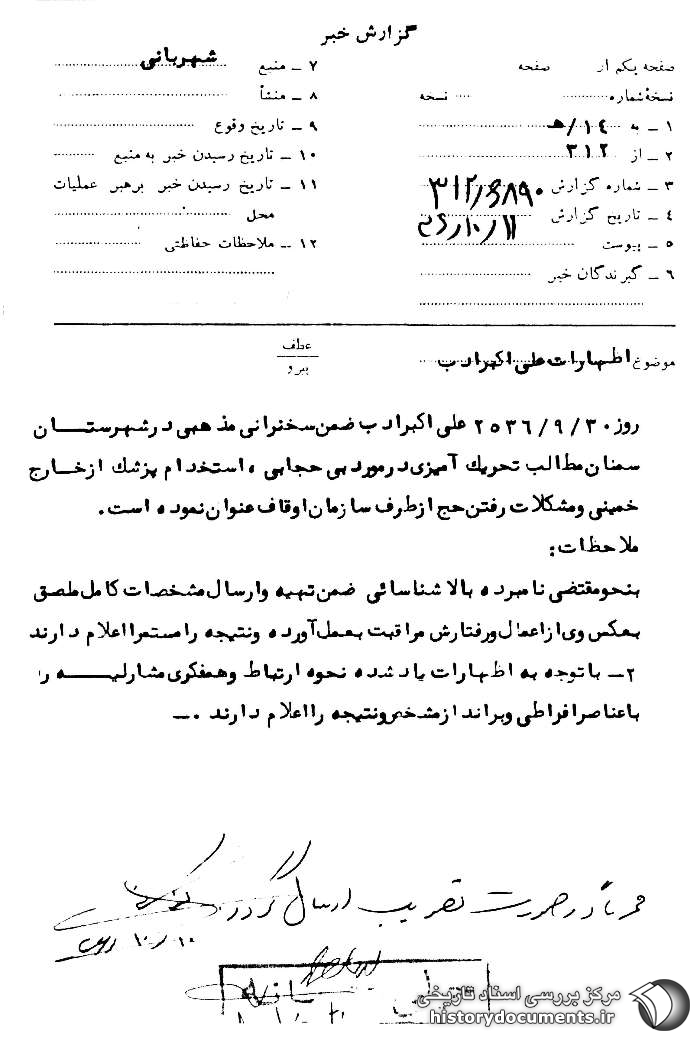 گزارش خبر
صفحه یکم از صفحه
نسخهٔ شماره ... نسخه
۱ ــ به ۱۴/هـ
۲ ــ از ۳۱۲
۳ ــ شماره گزارش
۴ ــ تاریخ گزارش
۵ ــ پیوست
۶ ــ گیرندگان خبر
۷ ــ منبع شهربانی
۸ ــ منشأ
۹ ــ تاریخ وقوع
۱۰ ــ تاریخ رسیدن خبر به منبع
۱۱ ــ تاریخ رسیدن خبر برهبر عملیات
محل
۱۲ ــ ملاحظات حفاظتی
موضوع اظهارات علی اکبر ادب
عطف
پیرو
روز ۲۵۳۶/۹/۳۰ علی اکبر ادب ضمن سخنرانی مذهبی در شهرستان
سمنان مطالب تحریک آمیزی در مورد بی حجابی ، استخدام پزشک از خارج
خمینی و مشکلات رفتن حج از طرف سازمان اوقاف عنوان نموده است.
ملاحظات:
بنحو مقتضی نامبرده بالا شناسائی ضمن تهیه و ارسال مشخصات کامل ملصق
بعکس وی از اعمال و رفتارش مراقبت بعمل آورده و نتیجه را مستمرا اعلام دارند
۲ــ با توجه به اظهارات یاد شده نحوه ارتباط و همفکری مشارلیه را
با عناصر افراطی و برانداز مشخص و نتیجه را اعلام دارند .ــ
در صورت تصویب ارسال گردد
مرکز بررسی اسناد تاریخی
historydocuments.ir